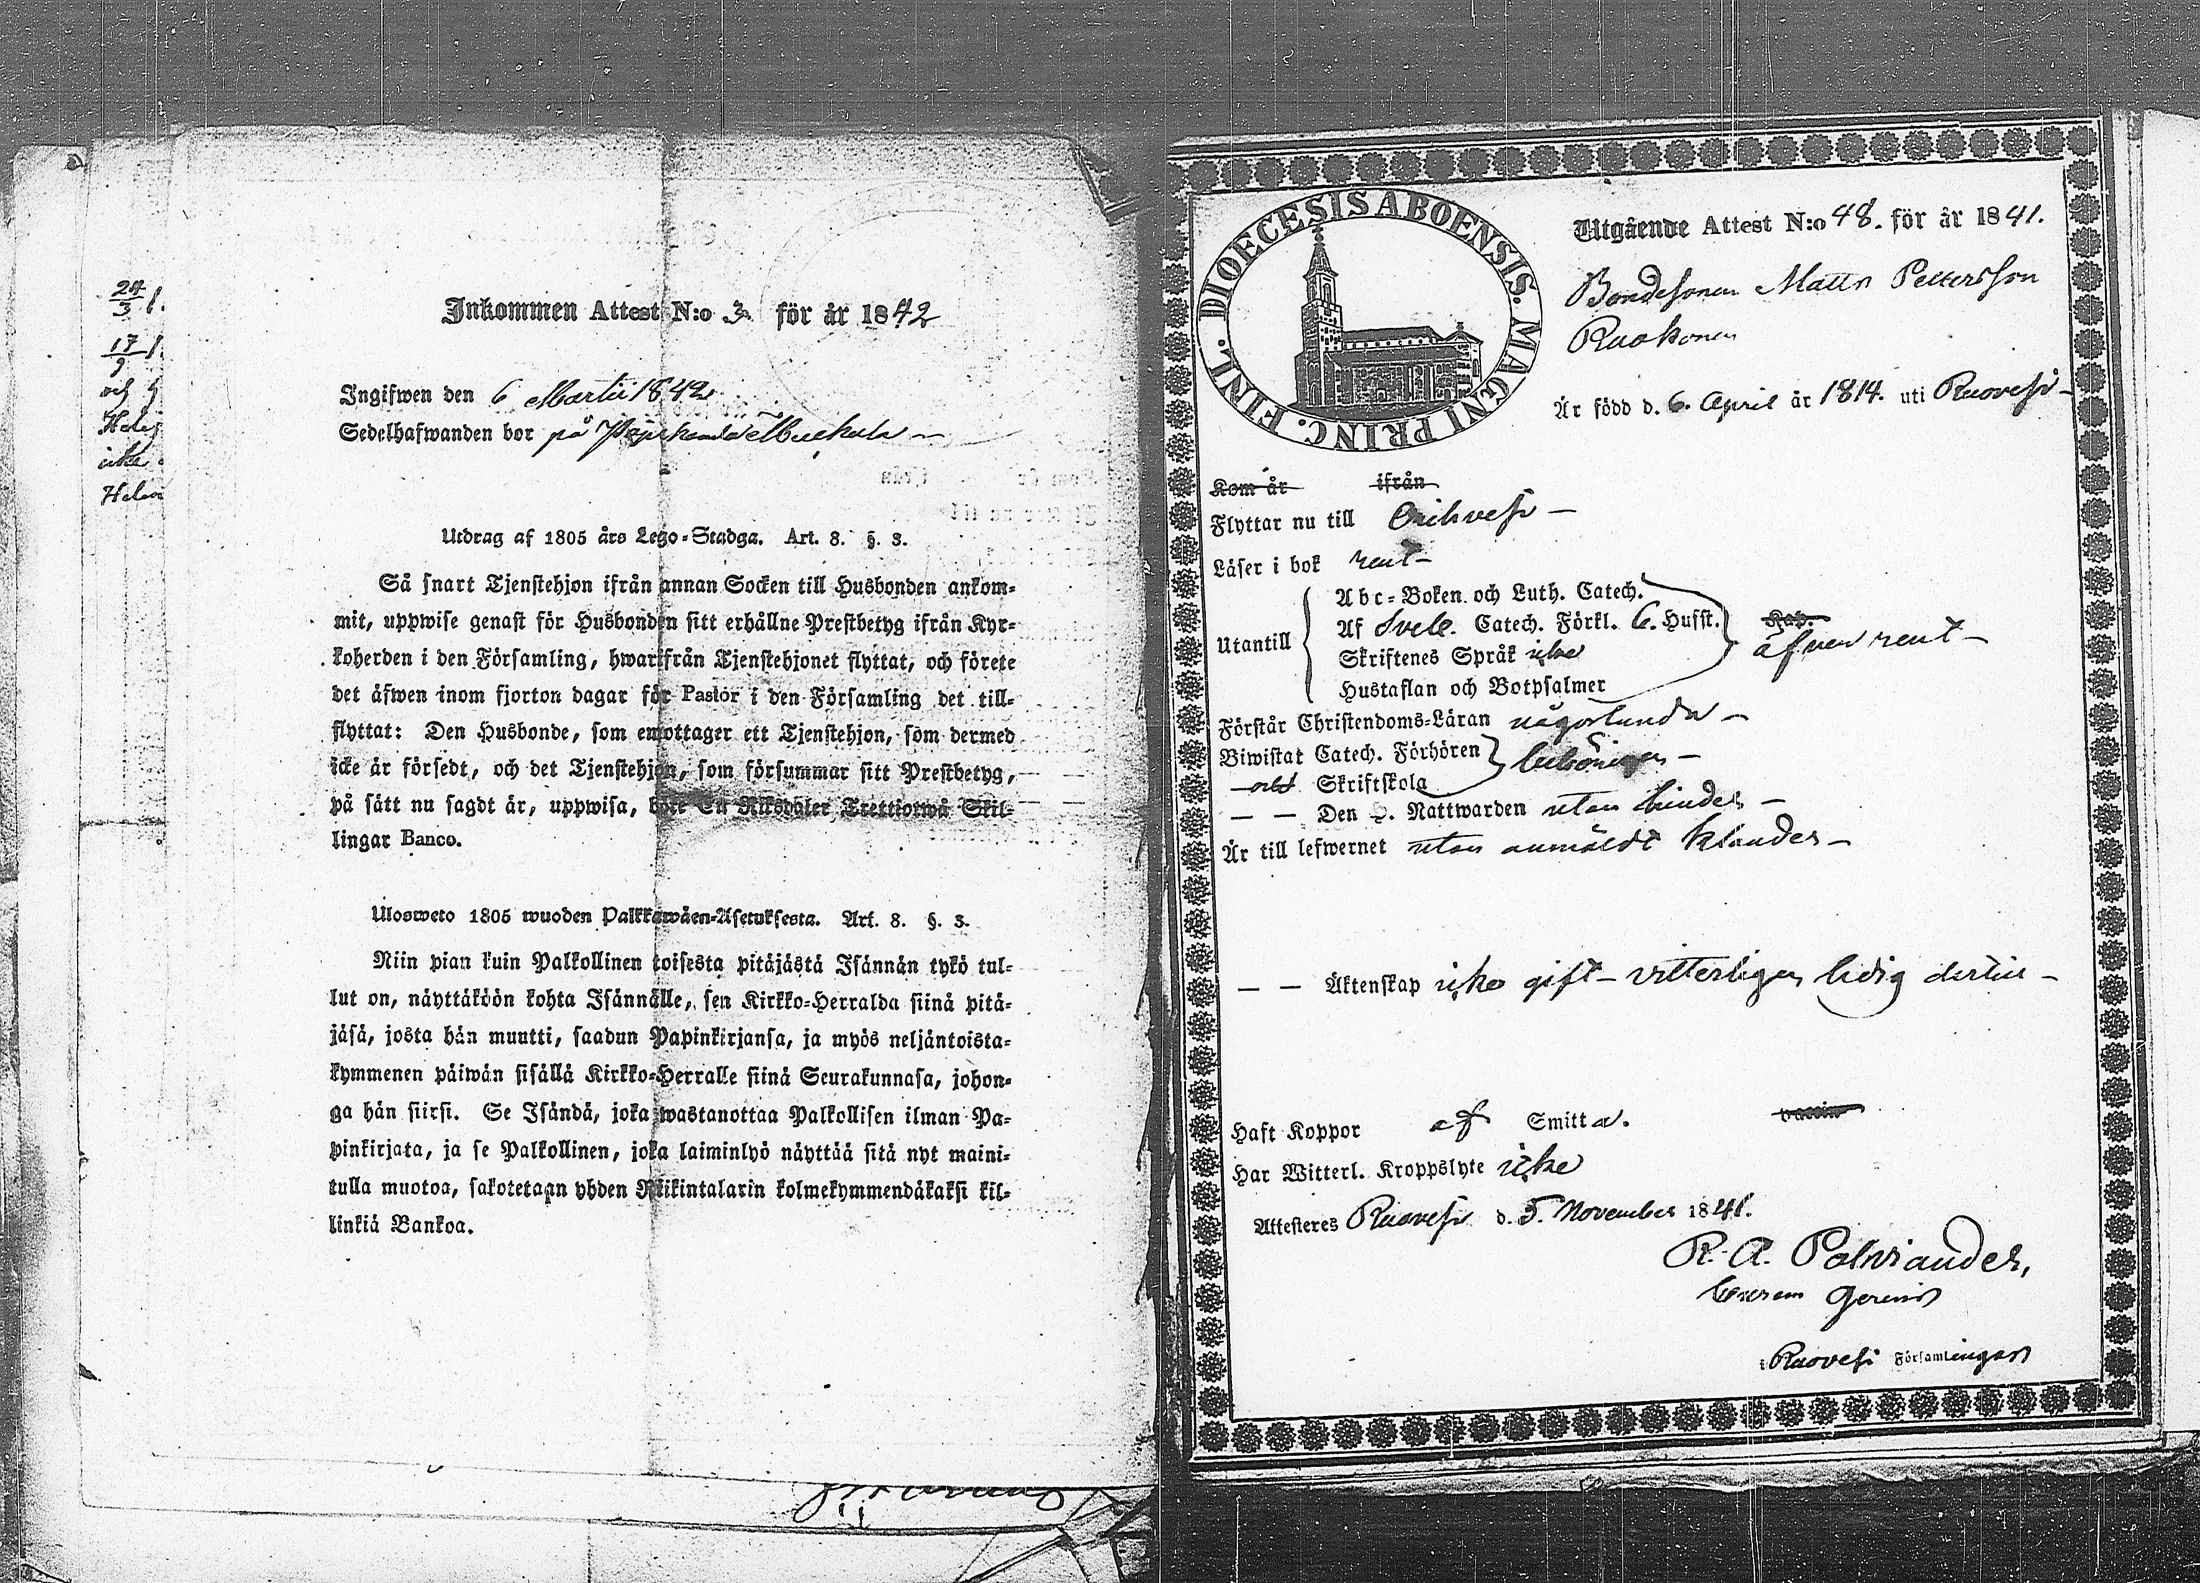 24/3
17/9
och
icke
Inkommen Attest N:o 3 för år 1842
Ingifwen den 6 Martii 1842
Sedelhafwanden bor på
Utdrag af 1805 års Lego-Stadga. Art. 8. §. 3.
Så snart Tjenstehjon ifrån annan Socken till Husbonden ankom-
mit, uppwise genast för Husbonden sitt erhållne Prestbetyg ifrån Kyr-
koherden i den Församling, hwarifrån Tjenstehjonet flyttat, och förete
det äfwen inom fjorton dagar för Pastor i den Församling det till-
flyttat: Den Husbonde, som emottager ett Tjenstehjon, som dermed
icke är försedt, och det Tjenstehjon, som försummar sitt Prestbetyg,
på sätt nu sagdt är, uppwisa, böte En Riksdaler Trettiotwå Skil-
lingar Banco.
Ulosweto 1805 wuoden Palkkawäen-Asetuksesta. Art. 8. §. 3.
Niin pian kuin Palkollinen toisesta pitäjästä Isännän tykö tul-
lut on, näyttäköön kohta Isännälle, sen Kirkko-Herralda siinä pitä-
jäsä, josta hän muutti, saadun Papinkirjansa, ja myös neljäntoista-
kymmenen päiwän sisällä Kirkko-Herralle siinä Seurakunnasa, johon-
ga hän siirsi. Se Isändä, joka wastanottaa Palkollisen ilman Pa-
pinkirjata, ja se Palkollinen, joka laiminlyö näyttää sitä nyt maini-
tulla muotoa, sakotetaan yhden Riikintalarin kolmekymmendäkaksi kil-
linkiä Bankoa.
DIOECESIS ABOENSIS. MAGNI PRINC. FINL.
Utgående Attest N:o 48. för år 1841.
Bondesonen Matts Pettersson
Ruokonen
Är född d. 6. April år 1814. uti Ruovesi
Kom år ifrån
Flyttar nu till Orihvesi
Läser i bok rent
Utantill
Abc-Boken och Luth. Catech.
Af Sveb. Catech. Förkl. 6. Hufst.
Skriftenes Språk icke
Hustaflan och Botpsalmer
äfven rent
Förstår Christendoms-Läran någorlunda
Biwistat Catech. Förhören
och Skriftskola
behörigen
— — Den H. Nattwarden utan hinder
Är till lefwernet utan anmäldt klander
— — Äktenskap icke gift - vitterligen ledig dertill
Haft Koppor af Smitta. vaccin
Har Witterl. Kroppslyte icke
Attesteres Ruovesi d. 5. November 1841.
R. A. Polviander,
Curam Gerens
i Ruovesi Församlingar